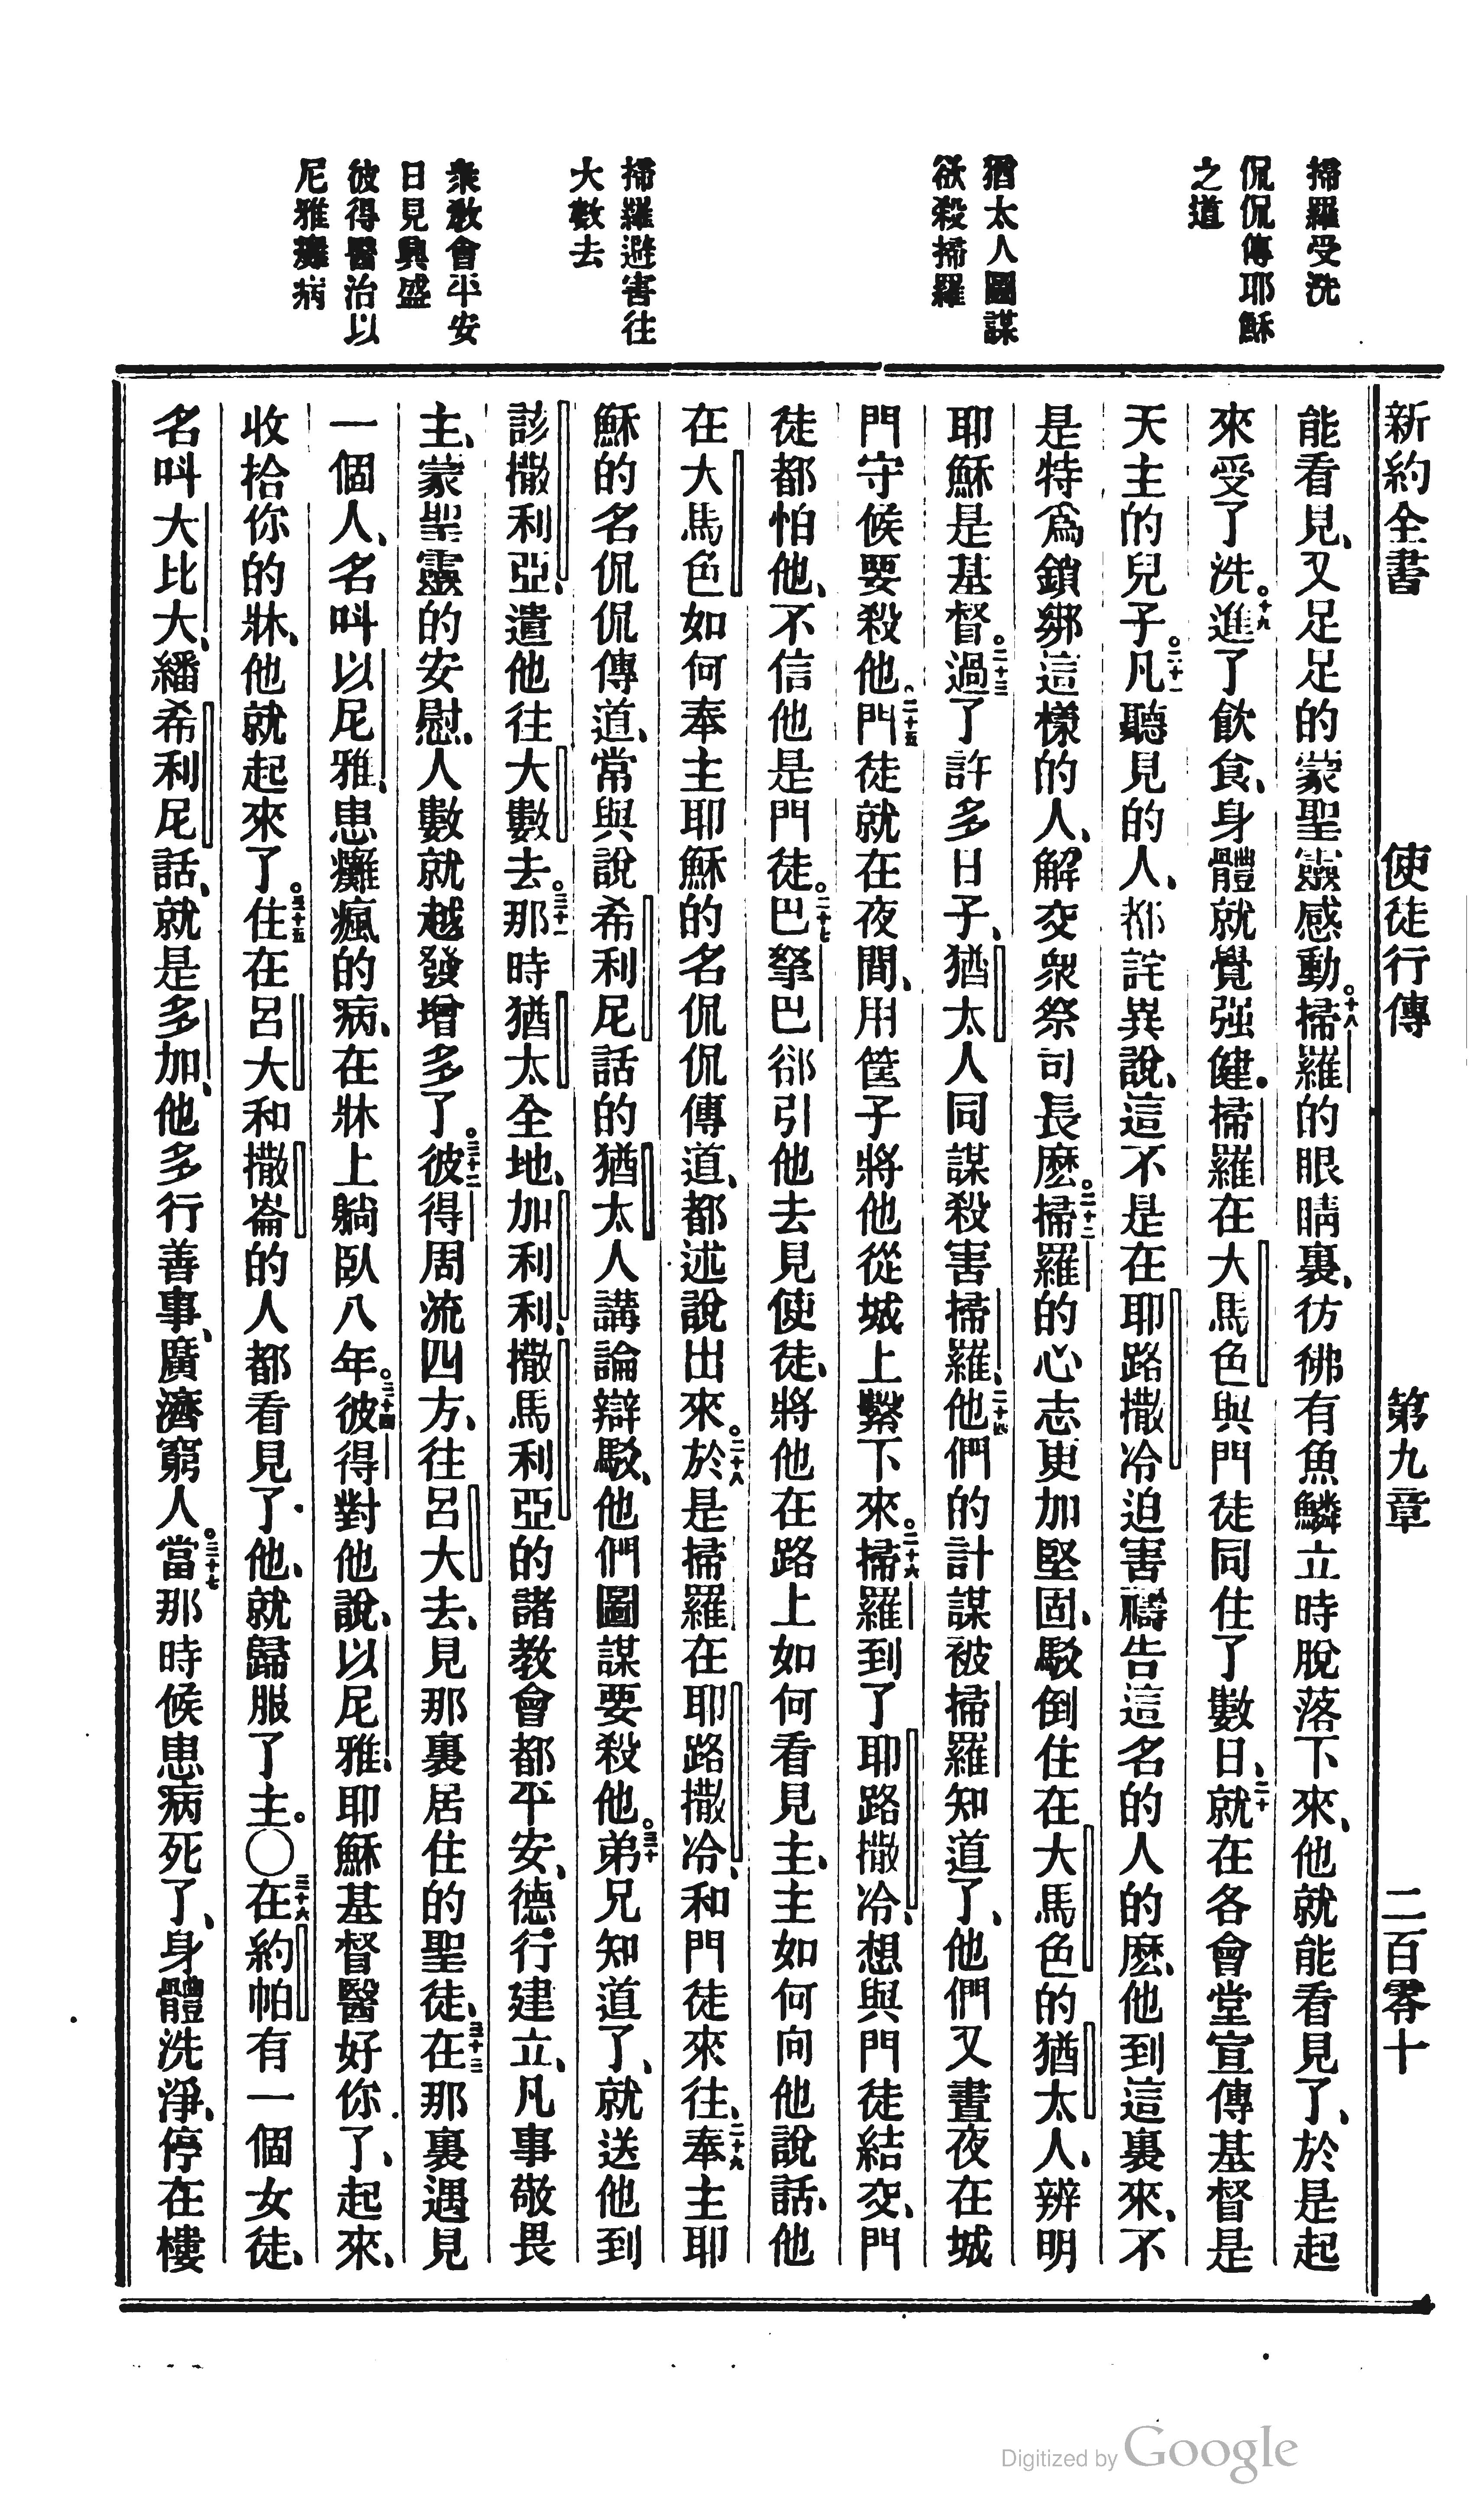 掃羅受洗
侃侃傳耶穌
之道
猶太人圖謀
欲殺掃羅
掃羅避害往
大數去
衆教會平安
日見興盛
彼得醫治以
尼雅癱病
新約全書 使徒行傳 第九章 二百零十
能看見、又足足的蒙聖靈感動。十八掃羅的眼睛裏、彷彿有魚鱗立時脫落下來、他就能看見了、於是起
來受了洗。十九進了飲食、身體就覺强健。掃羅在大馬色與門徒同住了數日、二十就在各會堂宣傳基督是
天主的兒子。二十一凡聽見的人、都詫異說、這不是在耶路撒冷迫害禱告這名的人的麽、他到這裏來、不
是特爲鎖綁這樣的人、解交衆祭司長麽。二十二掃羅的心志更加堅固、駁倒住在大馬色的猶太人、辨明
耶穌是基督。二十三過了許多日子、猶太人同謀殺害掃羅、二十四他們的計謀被掃羅知道了、他們又晝夜在城
門守候要殺他。二十五門徒就在夜間、用筐子將他從城上繫下來。二十六掃羅到了耶路撒冷、想與門徒結交、門
徒都怕他、不信他是門徒。二十七巴拏巴卻引他去見使徒、將他在路上如何看見主、主如何向他說話、他
在大馬色如何奉主耶穌的名侃侃傳道、都述說出來。二十八於是掃羅在耶路撒冷、和門徒來往、二十九奉主耶
穌的名侃侃傳道、常與說希利尼話的猶太人講論辯駁、他們圖謀要殺他。三十弟兄知道了、就送他到
該撒利亞、遣他往大數去。三十一那時猶太全地、加利利、撒馬利亞的諸教會都平安、德行建立、凡事敬畏
主、蒙聖靈的安慰、人數就越發增多了。三十二彼得周流四方、往呂大去、見那裏居住的聖徒、三十三在那裏遇見
一個人、名叫以尼雅、患癱瘋的病、在牀上躺臥八年。三十四彼得對他說、以尼雅、耶穌基督醫好你了、起來、
收拾你的牀、他就起來了。三十五住在呂大和撒崙的人都看見了他、就歸服了主。〇三十六在約帕有一個女徒、
名叫大比大、繙希利尼話、就是多加、他多行善事、廣濟窮人。三十七當那時候患病死了、身體洗淨、停在樓
Digitized by Google